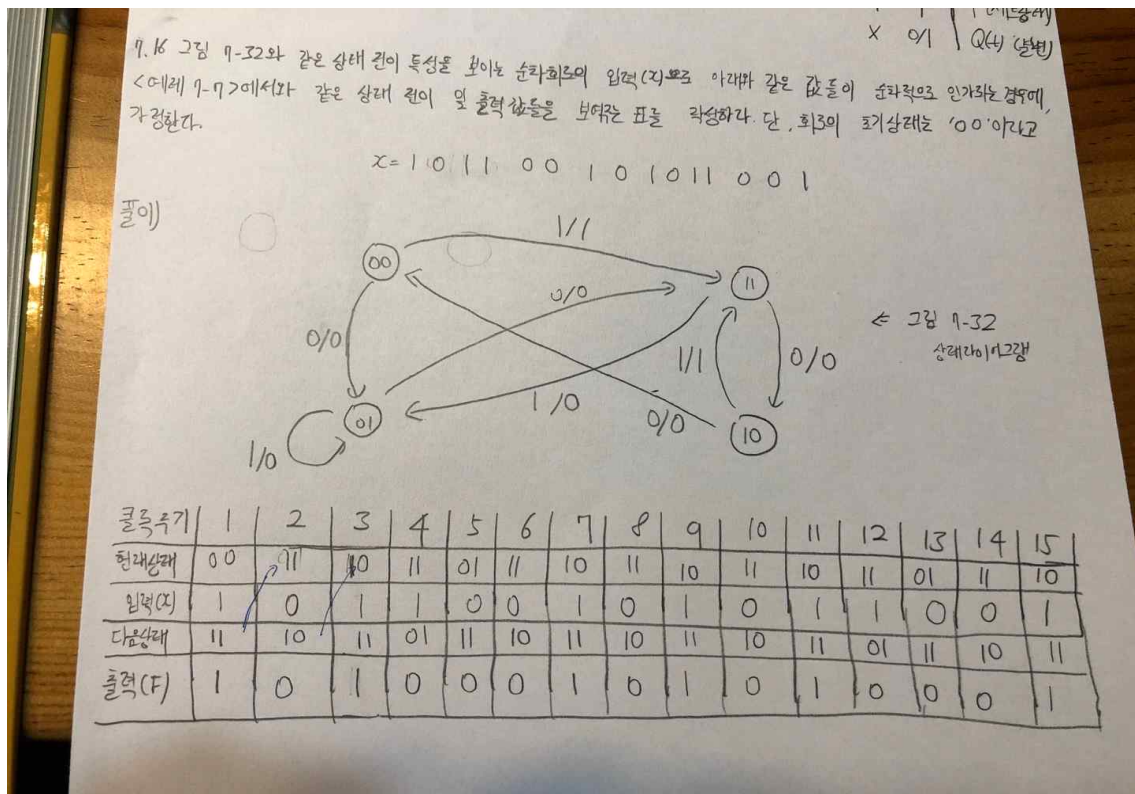 X 0/1 Q(t) (불변)
7.16 그림 7-32와 같은 상태 천이 특성을 보이는 순차회로의 입력(x)으로 아래와 같은 값들이 순차적으로 인가되는 경우에,
<예제 7-7>에서와 같은 상태 천이 및 출력값들을 보여주는 표를 작성하라. 단, 회로의 초기상태는 '00'이라고
가정한다.
x = 1 0 1 1 0 0 1 0 1 0 1 1 0 0 1
풀이)
1/1
00
11
0/0
0/0
⇐ 그림 7-32
상태다이어그램
0/0
1/1
1/0
0/0
01
10
1/0
클록주기 1 2 3 4 5 6 7 8 9 10 11 12 13 14 15
현재상태 00 11 10 11 01 11 10 11 10 11 10 11 01 11 10
입력(x) 1 0 1 1 0 0 1 0 1 0 1 1 0 0 1
다음상태 11 10 11 01 11 10 11 10 11 10 11 01 11 10 11
출력(F) 1 0 1 0 0 0 1 0 1 0 1 0 0 0 1